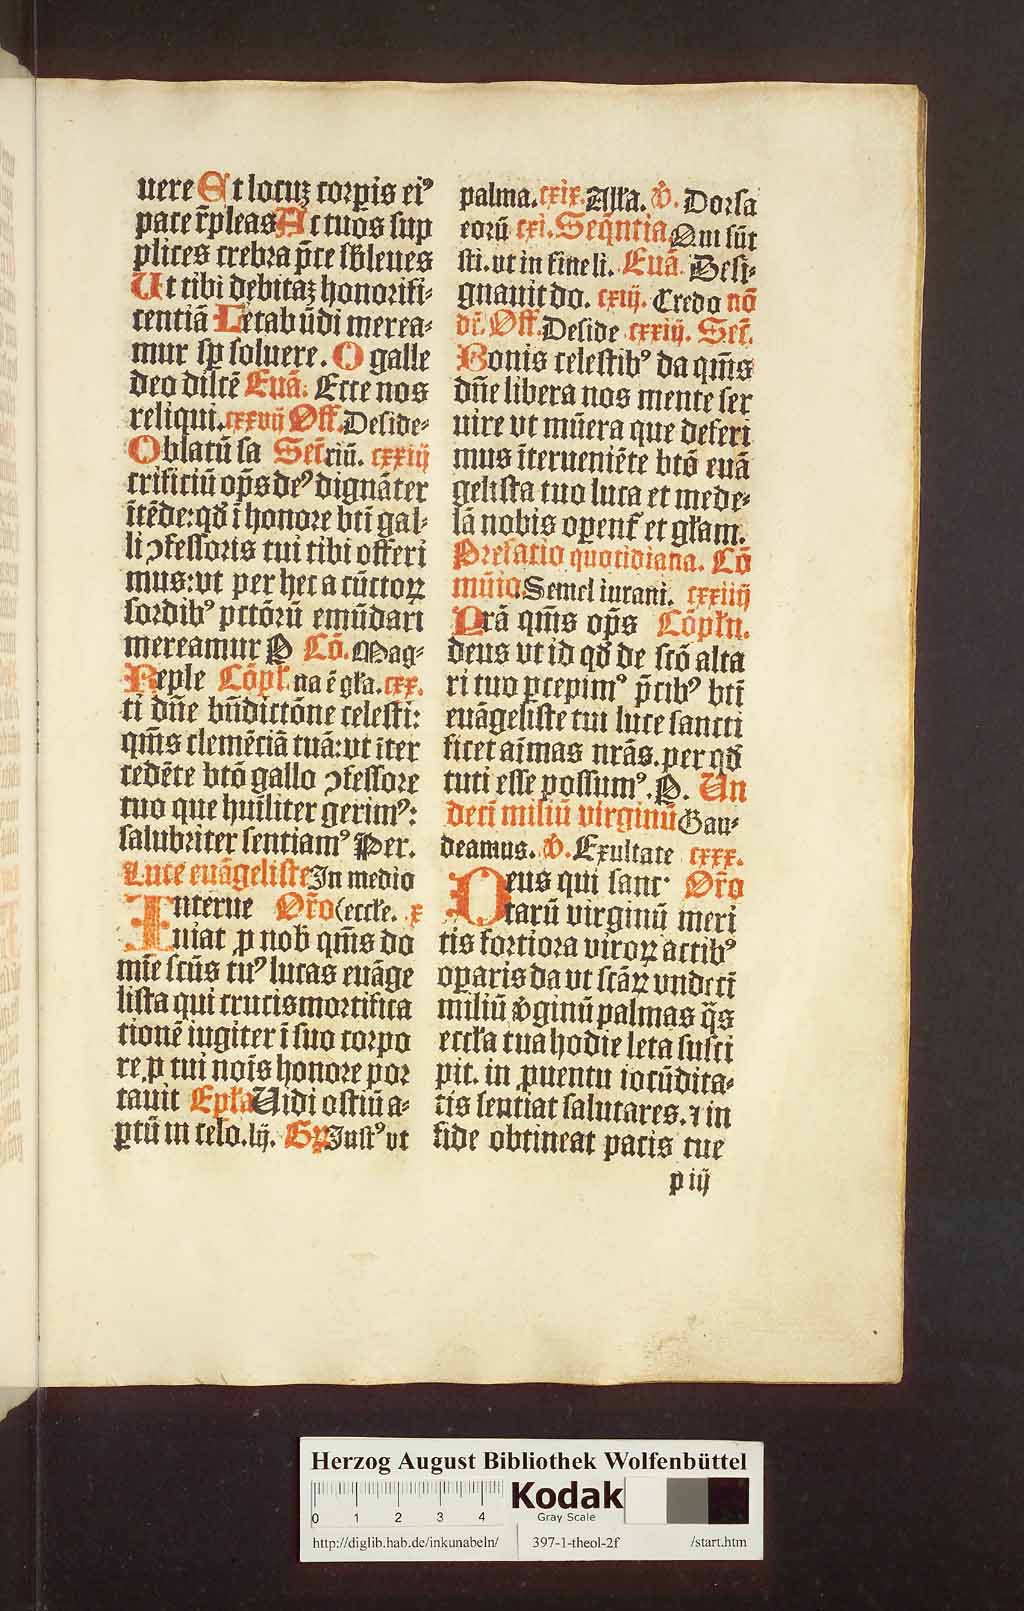 uere Et locuꝫ corꝑis ei⁹
pace r̃pleas Ac tuos sup
plices crebra p̃ce sb̃leues
Ut tibi debitaꝫ honorifi-
centiã Letab ũdi merea-
mur sꝑ soluere. O galle
deo dilcẽ Euã. Ecce nos
reliqui. cxxvij Off. Deside-
Oblatũ sa Secr̃ riũ. cxxiij
crificiũ op̃s de⁹ dignãter
ĩtẽde: qđ ĩ honore bt̃i gal-
li ꝯfessoris tui tibi offeri
mus: vt per hec a cũctoꝝ
sordib⁹ pctõrũ emũdari
mereamur P Cõ. Mag-
Reple Cõpl̃. na ẽ gl̃a. cxx.
ti dñe bñdictõne celesti:
qm̃s clemẽciã tuã: vt ĩter
cedẽte btõ gallo ꝯfessore
tuo que huĩliter gerim⁹:
salubriter sentiam⁹ Per.
Luce euãgeliste In medio
Interue Or̃o (eccl̃e. x
niat ꝓ nob̃ qm̃s do
mĩe scũs tu⁹ lucas euãge
lista qui crucis mortifica
tionẽ iugiter ĩ suo corpo
re, ꝓ tui noĩs honore por
tauit Epl̃a Uidi ostiũ a-
ptũ in celo. lij. Gꝝ Just⁹ vt
palma. cxix. All̃a. V̾. Dorsa
eorũ cxi. Seq̃ntia Qui sũt
isti. vt in fine li. Euã. Desi-
gnauit do. cxiij. Credo nõ
dr̃. Off. Deside cxxiij. Secr̃.
Donis celestib⁹ da qm̃s
dñe libera nos mente ser
uire vt mũera que deferi
mus ĩterueniẽte btõ euã
gelista tuo luca et mede-
lã nobis operẽt et gl̃am.
Prefatio quotidiana. Cõ
mũio. Semel iuraui. cxxiiij
Prã qm̃s op̃s Cõpl̃n.
deus vt id qđ de scõ alta
ri tuo ꝑcepim⁹ p̃cib⁹ bt̃i
euãgeliste tui luce sancti
ficet aĩmas nrãs. per qđ
tuti esse possum⁹. P. Un
decĩ miliũ virginũ Gau-
deamus. V̾. Exultate cxxx.
Deus qui sanc Or̃o
tarũ virginũ meri
tis fortiora viroꝝ actib⁹
oꝑaris da vt scãꝝ vndecĩ
miliũ v̾ginũ palmas q̃s
eccl̃a tua hodie leta susci
pit. in ꝓuentu iocũdita-
tis sentiat salutares. ⁊ in
fide obtineat pacis tue
p iij
Herzog August Bibliothek Wolfenbüttel
0 1 2 3 4
Kodak
Gray Scale
http://diglib.hab.de/inkunabeln/ 397-1-theol-2f /start.htm